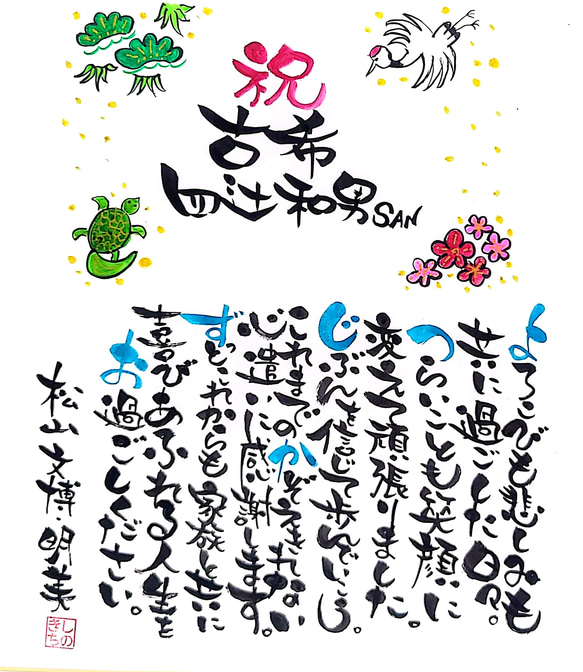 祝
古希
四辻和男SAN
よろこびも悲しみも
共に過ごした日々。
つらいことも笑顔に
変えて頑張りました。
じぶんを信じて歩んでいこう。
これまでのかぞえきれない
心遣いに感謝します。
ずっとこれからも家族と共に
喜びあふれる人生を
お過ごしください。
松山文博・明美
しの
きち